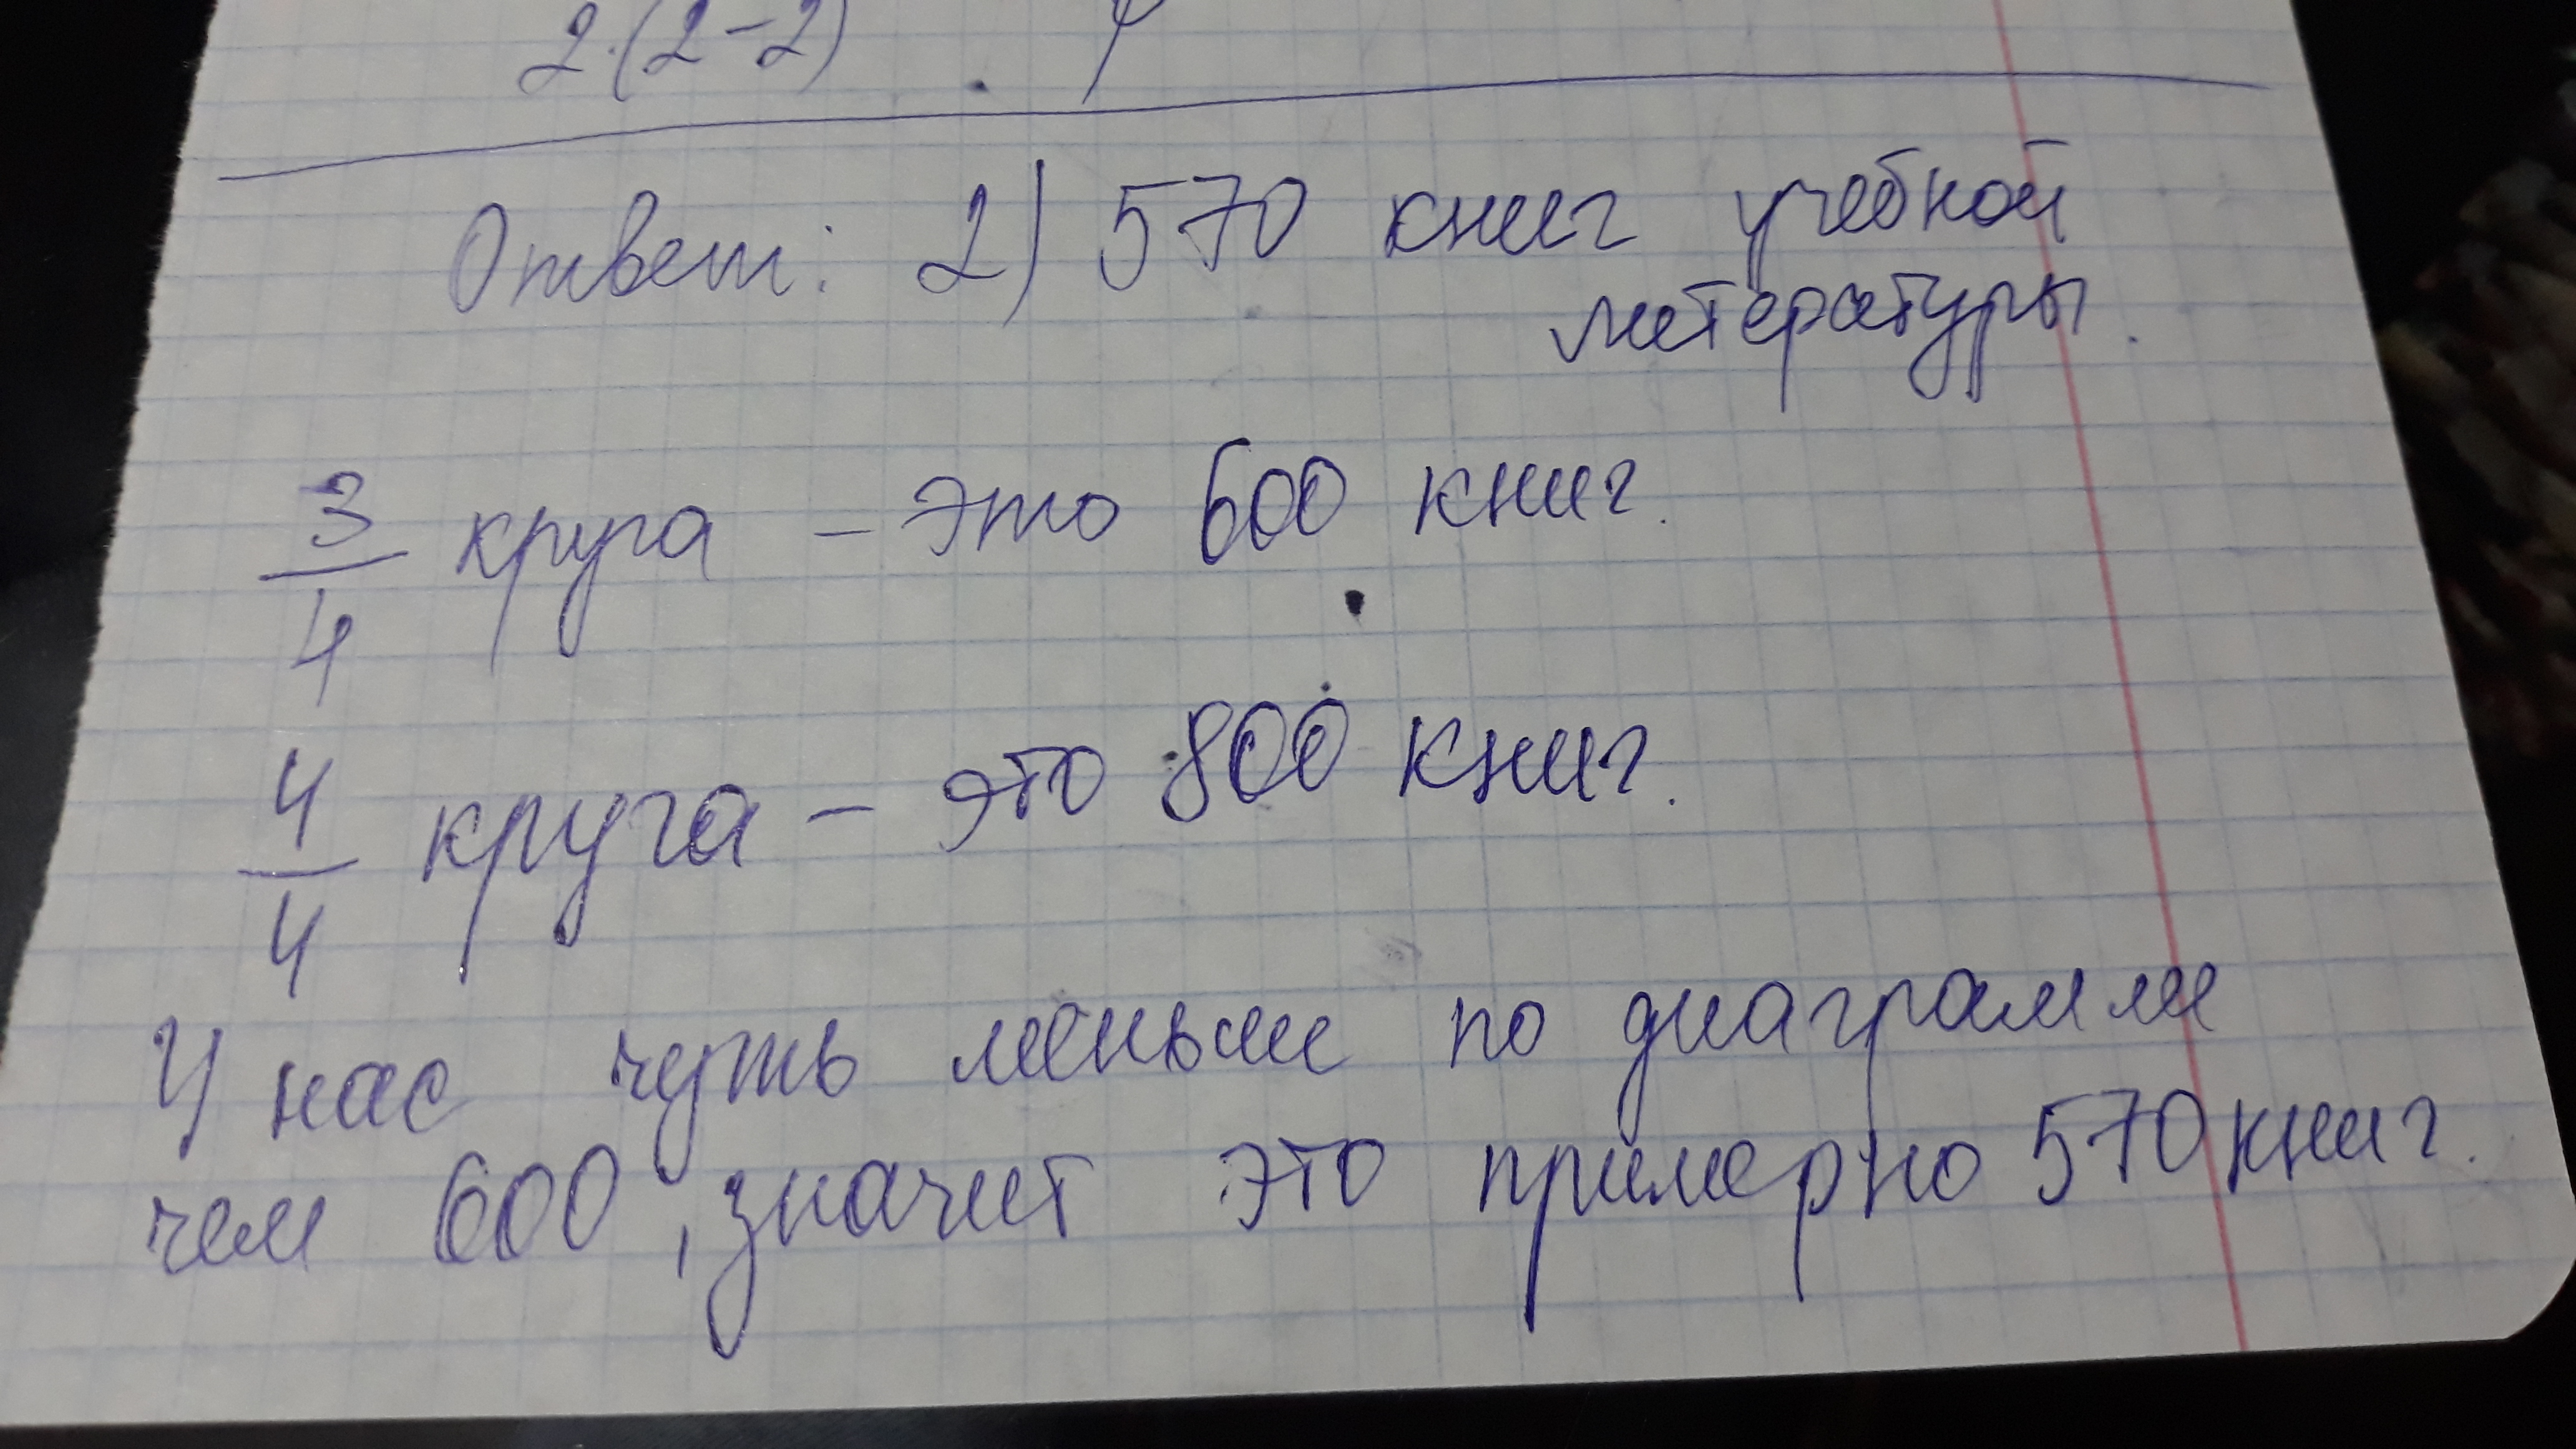 2·(2-2)
Ответ: 2) 570 книг учебной
литературы.
3/4 круга - это 600 книг.
4/4 круга - это 800 книг.
У нас чуть меньше по диаграмме
чем 600, значит это примерно 570 книг.